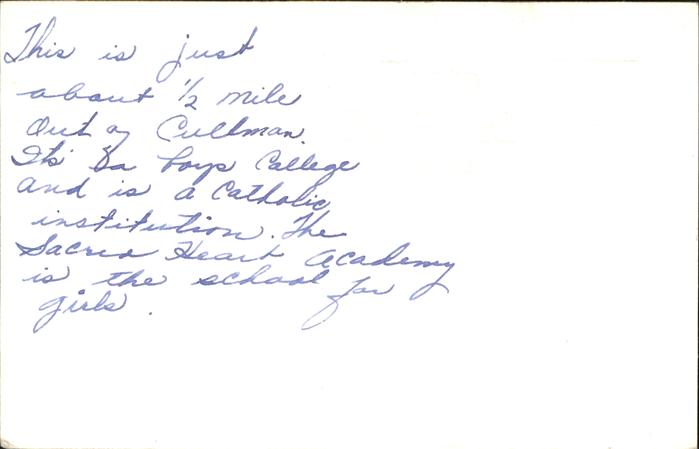 This is just
about 1/2 mile
Out of Cullman.
It's a boys College
and is a Catholic
institution. The
Sacred Heart Academy
is the school for
girls.